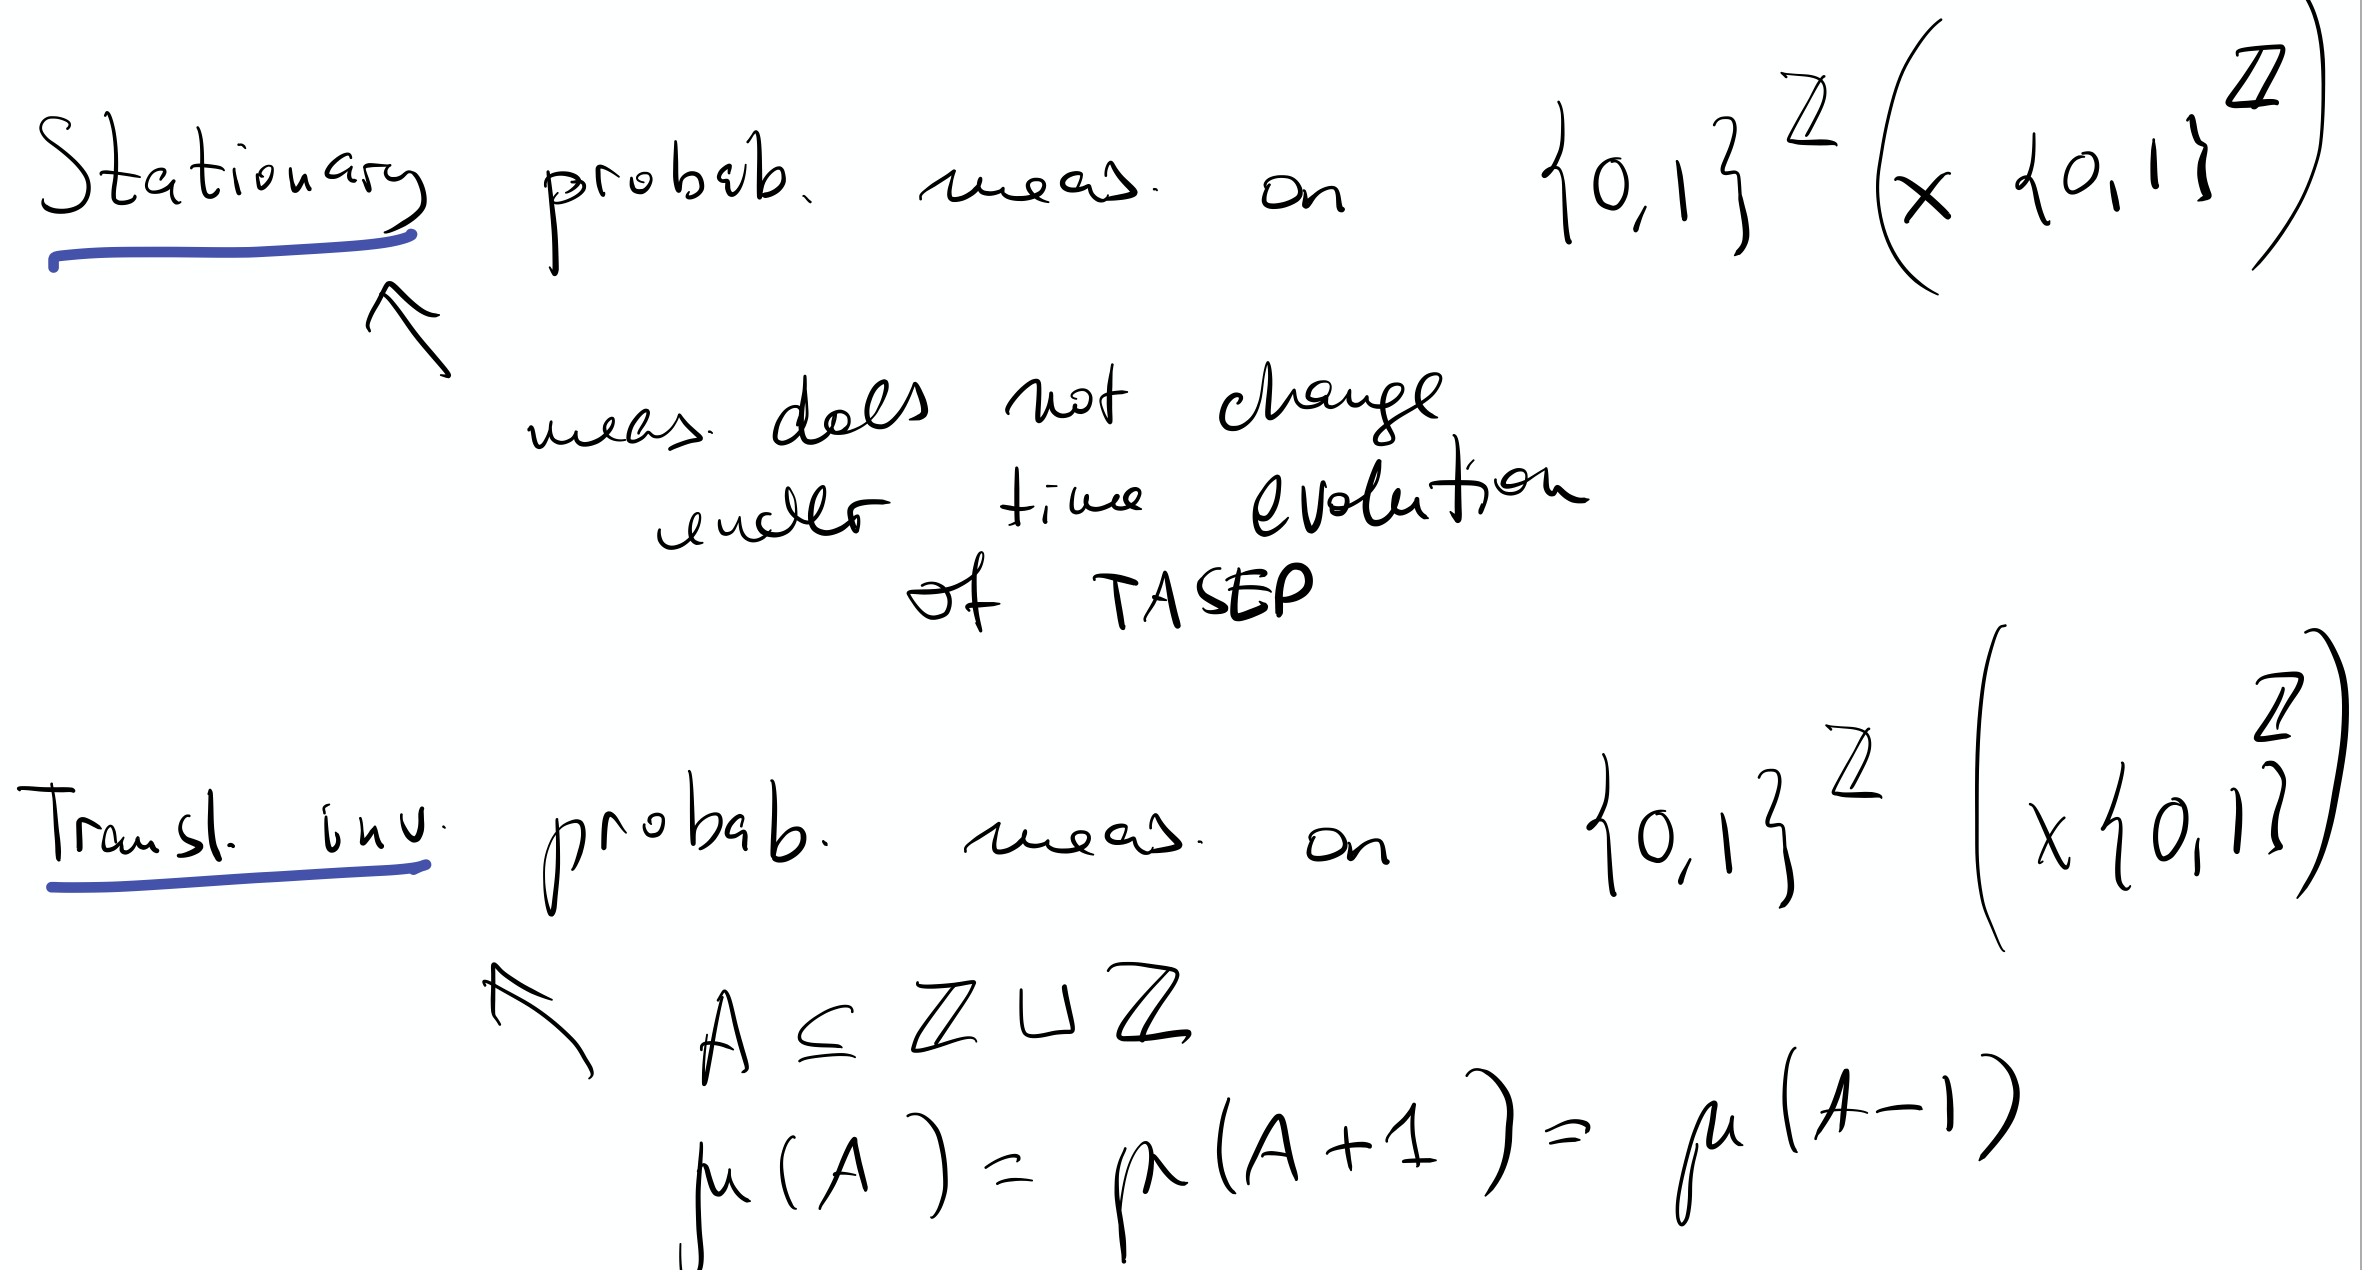 Stationary probab. meas. on {0,1}^ℤ (× {0,1}^ℤ)
meas. does not change
under time evolution
of TASEP
Transl. inv. probab. meas. on {0,1}^ℤ (×{0,1}^ℤ)
A ⊆ ℤ ⊔ ℤ
μ(A) = μ(A+1) = μ(A−1)